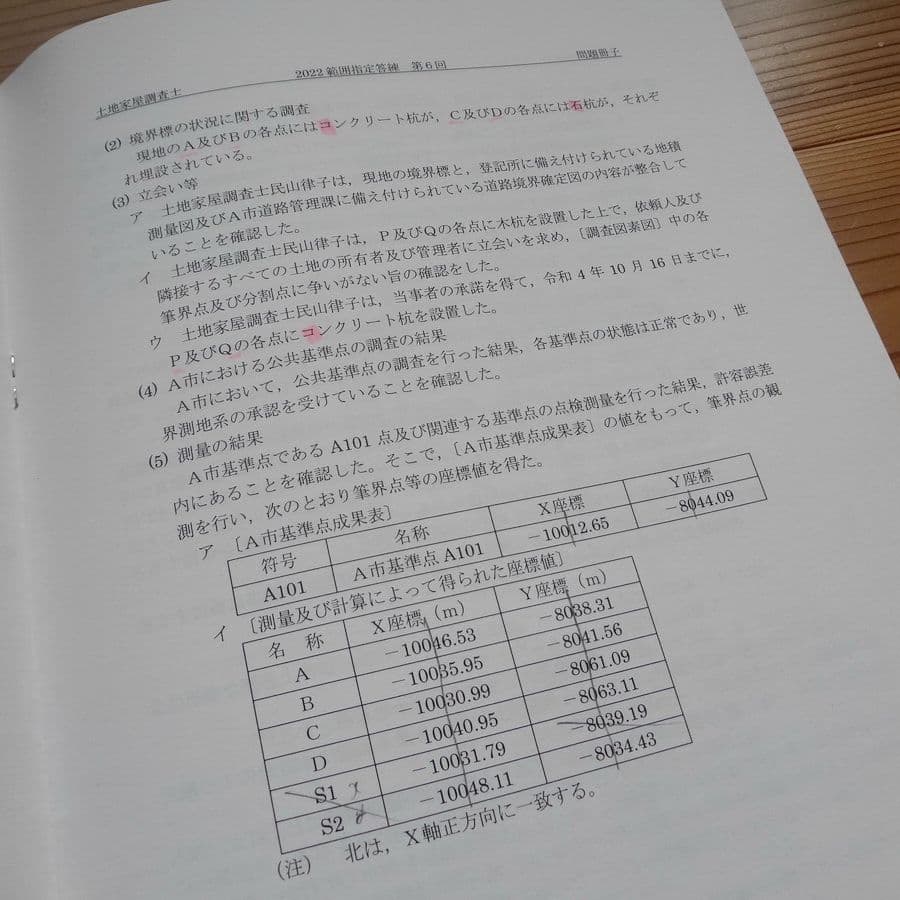 土地家屋調査士 2022 範囲指定答練 第6回 問題冊子
(2) 境界標の状況に関する調査
現地のA及びBの各点にはコンクリート杭が，C及びDの各点には石杭が，それぞ
れ埋設されている。
(3) 立会い等
ア 土地家屋調査士民山律子は，現地の境界標と，登記所に備え付けられている地積
測量図及びA市道路管理課に備え付けられている道路境界確定図の内容が整合して
いることを確認した。
イ 土地家屋調査士民山律子は，P及びQの各点に木杭を設置した上で，依頼人及び
隣接するすべての土地の所有者及び管理者に立会いを求め，〔調査図素図〕中の各
筆界点及び分割点に争いがない旨の確認をした。
ウ 土地家屋調査士民山律子は，当事者の承諾を得て，令和4年10月16日までに，
P及びQの各点にコンクリート杭を設置した。
(4) A市における公共基準点の調査の結果
A市において，公共基準点の調査を行った結果，各基準点の状態は正常であり，世
界測地系の承認を受けていることを確認した。
(5) 測量の結果
A市基準点であるA101点及び関連する基準点の点検測量を行った結果，許容誤差
内にあることを確認した。そこで，〔A市基準点成果表〕の値をもって，筆界点の観
測を行い，次のとおり筆界点等の座標値を得た。
ア 〔A市基準点成果表〕
符号 名称 X座標 Y座標
A101 A市基準点A101 －10012.65 －8044.09
イ 〔測量及び計算によって得られた座標値〕
名 称 X座標（m） Y座標（m）
A －10046.53 －8038.31
B －10035.95 －8041.56
C －10030.99 －8061.09
D －10040.95 －8063.11
S1 －10031.79 －8039.19
S2 －10048.11 －8034.43
（注） 北は，X軸正方向に一致する。